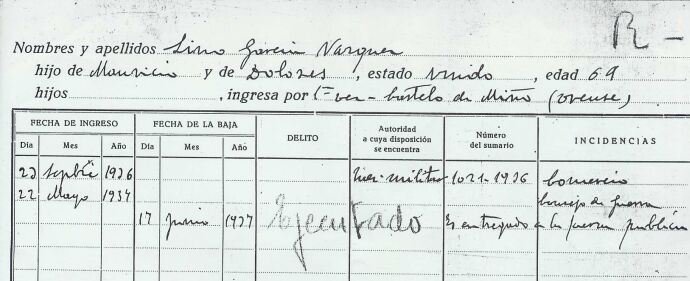 R -
Nombres y apellidos Lino García Vazquez
hijo de Mauricio y de Dolores, estado viudo, edad 69
hijos , ingresa por 1ª ver - Castelo de Miño (orense)
FECHA DE INGRESO FECHA DE LA BAJA DELITO Autoridad a cuya disposición se encuentra Número del sumario INCIDENCIAS
Día Mes Año Día Mes Año
23 Sepbre 1936 militar 1021-1936 Comercio
22 Mayo 1937 Consejo de guerra
17 Junio 1937 Ejecutado Es entregado a la fuerza pública